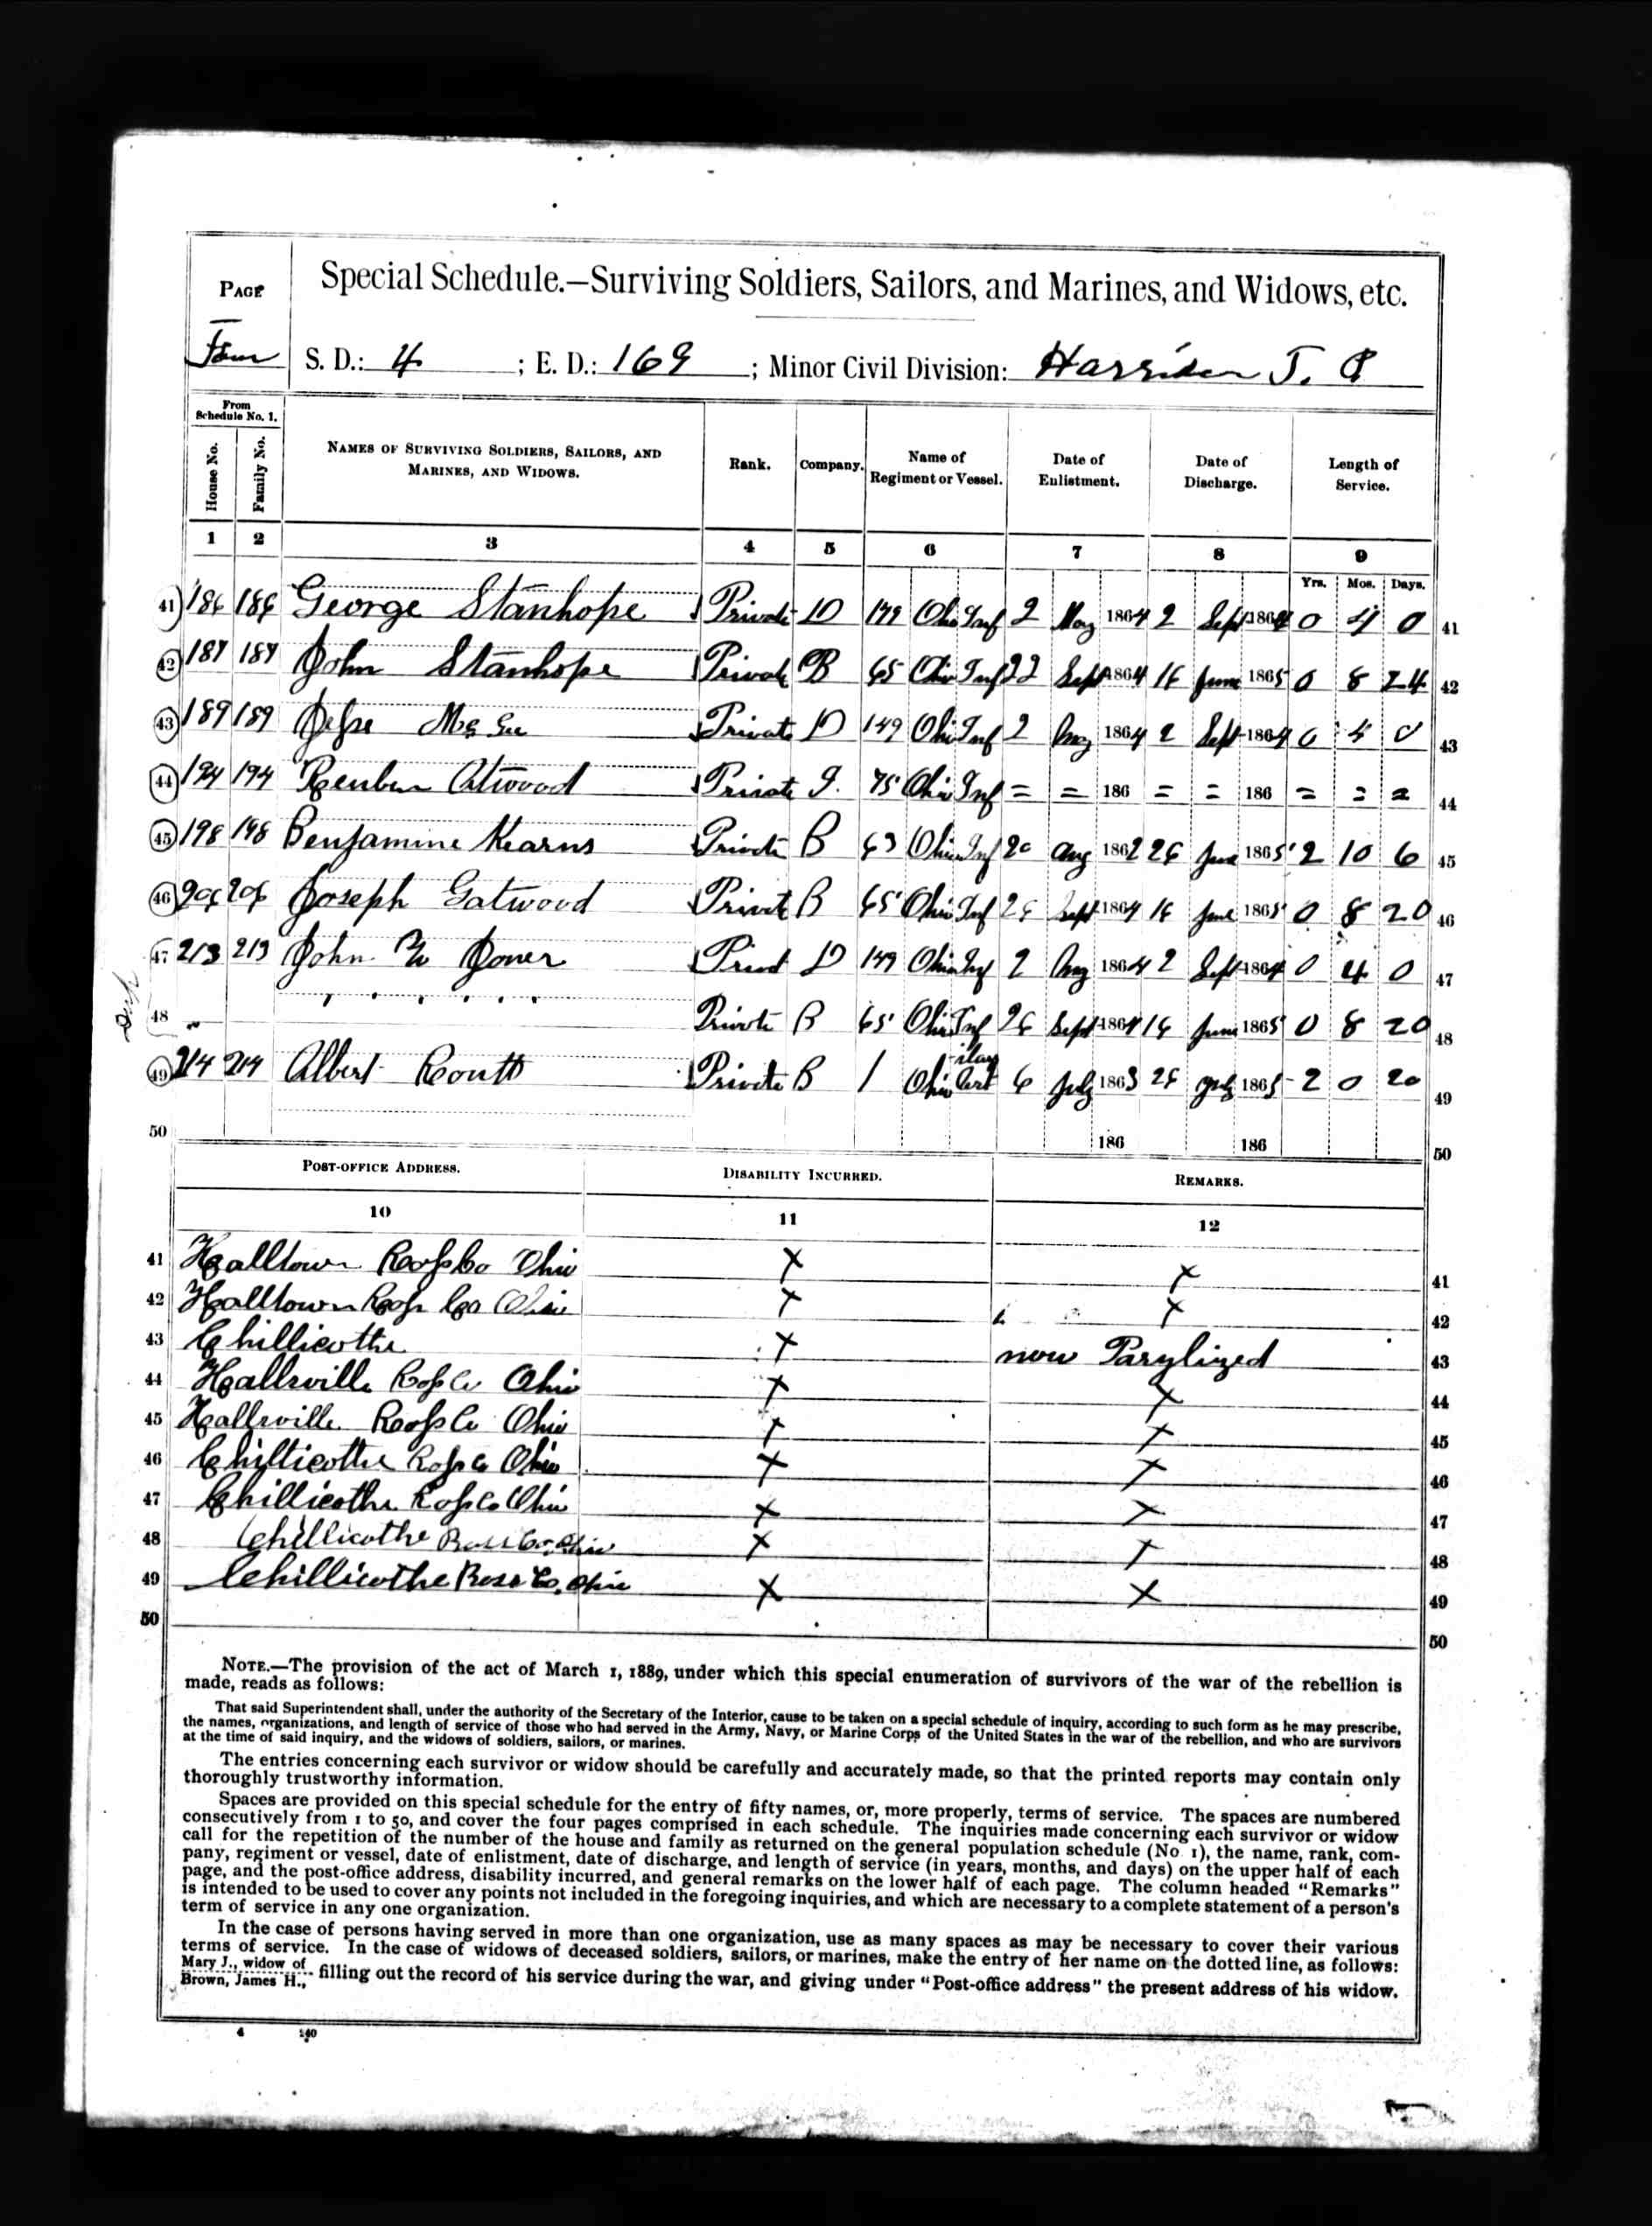 Special Schedule.—Surviving Soldiers, Sailors, and Marines, and Widows, etc.
PAGE
Four
S. D.: 4 ; E. D.: 169 ; Minor Civil Division: Harrison T. P
From Schedule No. 1.
House No.
Family No.
NAMES OF SURVIVING SOLDIERS, SAILORS, AND MARINES, AND WIDOWS.
Rank.
Company.
Name of Regiment or Vessel.
Date of Enlistment.
Date of Discharge.
Length of Service.
1 2 3 4 5 6 7 8 9
Yrs. Mos. Days.
41 186 186 George Stanhope Private D 149 Ohio Inf 2 May 1864 2 Sept 1864 0 4 0 41
42 187 187 John Stanhope Private B 65 Ohio Inf 22 Sept 1864 16 June 1865 0 8 24 42
43 189 189 Jesse Private D 149 Ohio Inf 2 1864 2 Sept 1864 0 0 43
44 194 194 Reuben Atwood Private I. 75 Ohio Inf = = 186 = = 186 = = = 44
45 198 198 Benjamine Kearns Private B 63 Ohio Inf 20 Aug 1862 26 June 1865 2 10 6 45
46 206 206 Joseph Gatwood Private B 65 Ohio Inf 26 Sept 1864 16 June 1865 0 8 20 46
47 213 213 John W Jones D 149 Ohio Inf 2 1864 2 Sept 1864 0 4 0 47
48 " " " " " " Private B 65 Ohio Inf 26 Sept 1864 16 June 1865 0 8 20 48
49 214 214 Albert Routt Private B 1 Ohio Art 6 July 1863 26 July 1865 2 0 20 49
50 186 186 50
POST-OFFICE ADDRESS. DISABILITY INCURRED. REMARKS.
10 11 12
41 Halltown Ross Co Ohio X X 41
42 Halltown Ross Co Ohio X X 42
43 Chillicothe X now Parylized 43
44 Hallsville Ross Co Ohio X X 44
45 Hallsville Ross Co Ohio X X 45
46 Chillicothe Ross Co Ohio X X 46
47 Chillicothe Ross Co Ohio X X 47
48 Chillicothe Ross Co. Ohio X X 48
49 Chillicothe Ross Co. Ohio X X 49
50 50
NOTE.—The provision of the act of March 1, 1889, under which this special enumeration of survivors of the war of the rebellion is
made, reads as follows:
That said Superintendent shall, under the authority of the Secretary of the Interior, cause to be taken on a special schedule of inquiry, according to such form as he may prescribe,
the names, organizations, and length of service of those who had served in the Army, Navy, or Marine Corps of the United States in the war of the rebellion, and who are survivors
at the time of said inquiry, and the widows of soldiers, sailors, or marines.
The entries concerning each survivor or widow should be carefully and accurately made, so that the printed reports may contain only
thoroughly trustworthy information.
Spaces are provided on this special schedule for the entry of fifty names, or, more properly, terms of service. The spaces are numbered
consecutively from 1 to 50, and cover the four pages comprised in each schedule. The inquiries made concerning each survivor or widow
call for the repetition of the number of the house and family as returned on the general population schedule (No. 1), the name, rank, com-
pany, regiment or vessel, date of enlistment, date of discharge, and length of service (in years, months, and days) on the upper half of each
page, and the post-office address, disability incurred, and general remarks on the lower half of each page. The column headed "Remarks"
is intended to be used to cover any points not included in the foregoing inquiries, and which are necessary to a complete statement of a person's
term of service in any one organization.
In the case of persons having served in more than one organization, use as many spaces as may be necessary to cover their various
terms of service. In the case of widows of deceased soldiers, sailors, or marines, make the entry of her name on the dotted line, as follows:
Mary J., widow of
Brown, James H., filling out the record of his service during the war, and giving under "Post-office address" the present address of his widow.